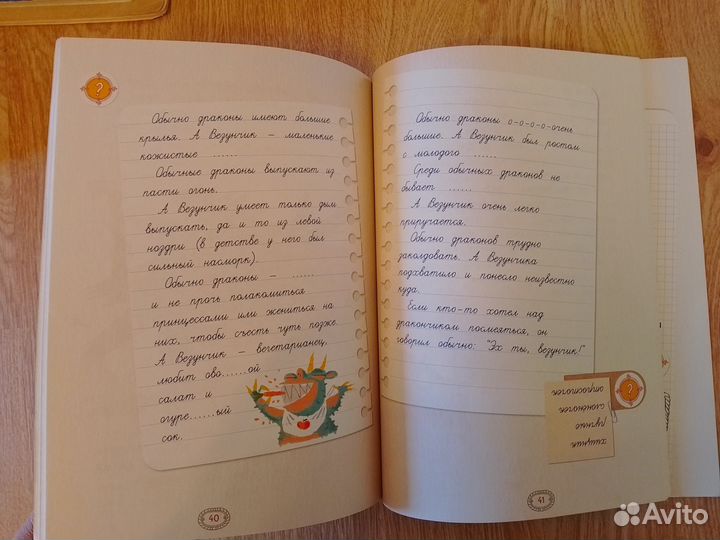 ?
Обычно драконы имеют большие
крылья. А Везунчик – маленькие
кожистые ......
Обычные драконы выпускают из
пасти огонь.
А Везунчик умеет только дым
выпускать, да и то из левой
ноздри (в детстве у него был
сильный насморк).
Обычно драконы – ......
и не прочь полакомиться
принцессами или жениться на
них, чтобы съесть чуть позже.
А Везунчик – вегетарианец,
любит ово......ой
салат и
огуре......ый
сок.
40
Обычно драконы о-о-о-о-очень
большие. А Везунчик был ростом
с молодого ......
Среди обычных драконов не
бывает ......
А Везунчик очень легко
приручается.
Обычно драконов трудно
заколдовать. А Везунчика
подхватило и понесло неизвестно
куда.
Если кто-то хотел над
дракончиком посмеяться, он
говорил обычно: "Эх ты, везунчик!"
?
хищник
ручно
слонёнок
41
Avito